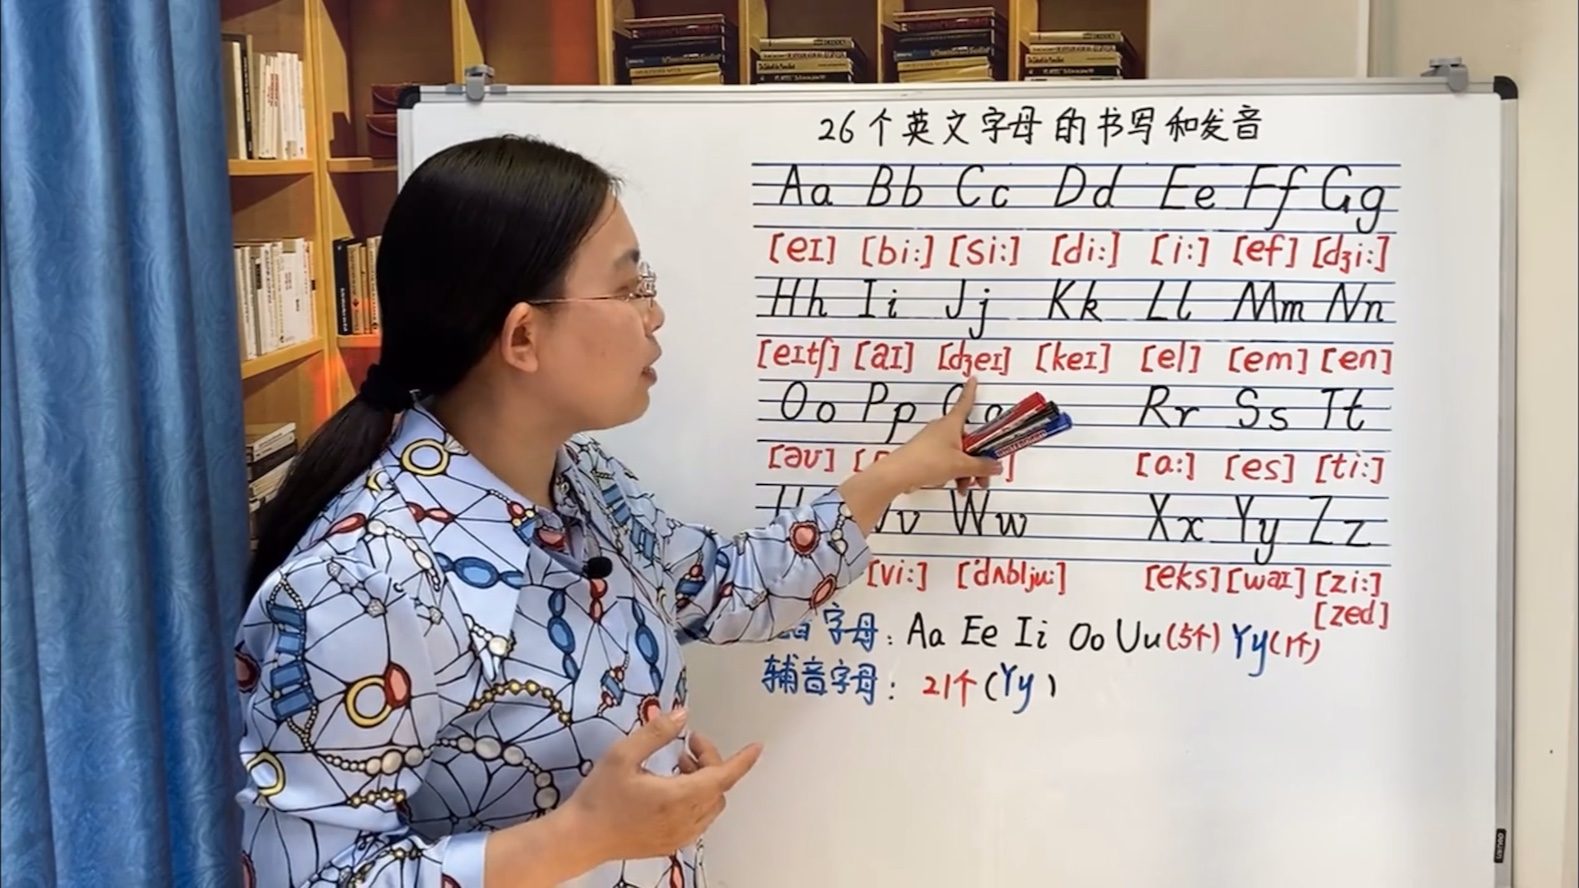 26个英文字母的书写和发音
Aa Bb Cc Dd Ee Ff Gg
[eɪ] [bi:] [si:] [di:] [i:] [ef] [dʒi:]
Hh Ii Jj Kk Ll Mm Nn
[eɪtʃ] [aɪ] [dʒeɪ] [keɪ] [el] [em] [en]
Oo Pp Rr Ss Tt
[əʊ] [a:] [es] [ti:]
Vv Ww Xx Yy Zz
[vi:] ['dʌblju:] [eks] [waɪ] [zi:]
[zed]
音字母: Aa Ee Ii Oo Uu(5个) Yy(1个)
辅音字母: 21个(Yy)